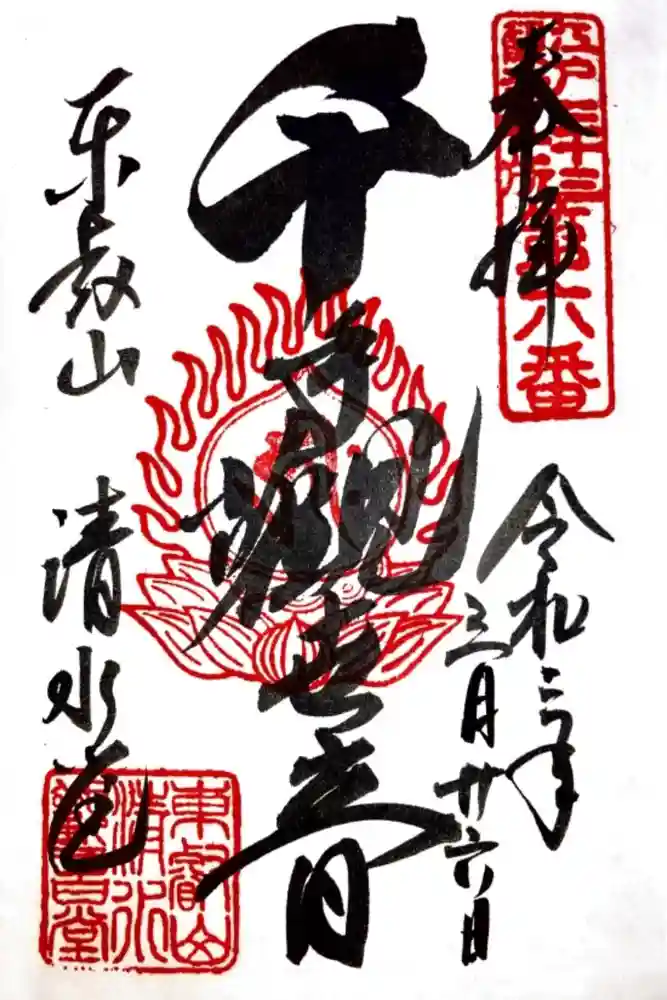 奉拝
江戸三十三観音札所第六番
令和三年
三月廿六日
千手観世音
東叡山
清水堂
東叡山
清水
観音堂